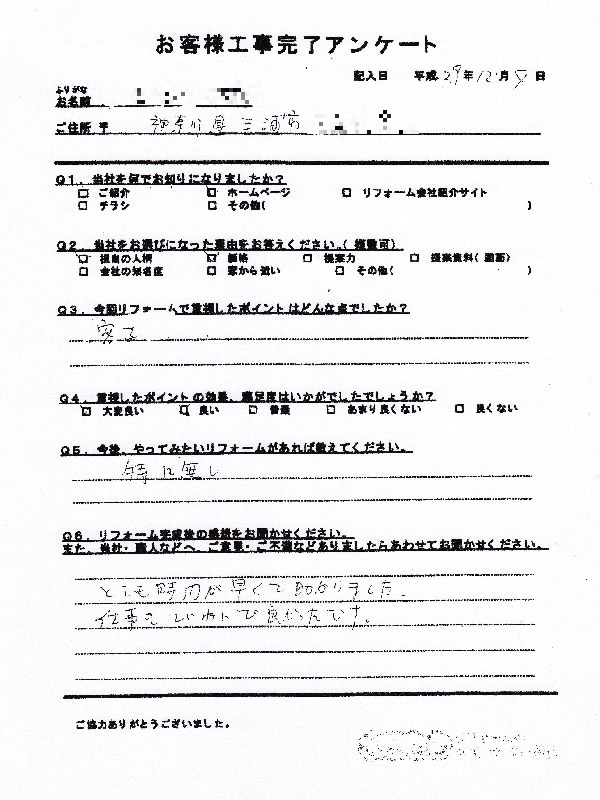 お客様工事完了アンケート
記入日 平成 29年 12月 5日
ふりがな
お名前
ご住所 〒 神奈川県三浦市
Q1．当社を何でお知りになりましたか？
□ ご紹介 □ ホームページ □ リフォーム会社紹介サイト
□ チラシ □ その他( )
Q2．当社をお選びになった理由をお答えください。(複数可)
□ 担当の人柄 □ 価格 □ 提案力 □ 提案資料(図面)
□ 会社の知名度 □ 家から近い □ その他( )
Q3．今回リフォームで重視したポイントはどんな点でしたか？
Q4．重視したポイントの効果、満足度はいかがでしたでしょうか？
□ 大変良い □ 良い □ 普通 □ あまり良くない □ 良くない
Q5．今後、やってみたいリフォームがあれば教えてください。
特に無し
Q6．リフォーム完成後の感想をお聞かせください。
また、当社・職人などへ、ご意見・ご不満などありましたらあわせてお聞かせください。
とても時間が早くて助かりました。
仕事もていねいで良かったです。
ご協力ありがとうございました。